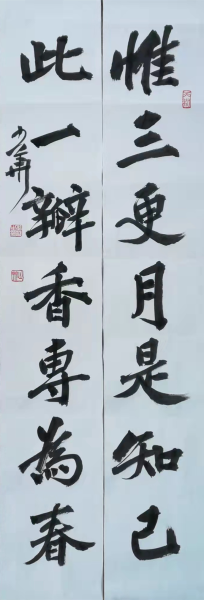 惟三更月是知己
此一瓣香專為春